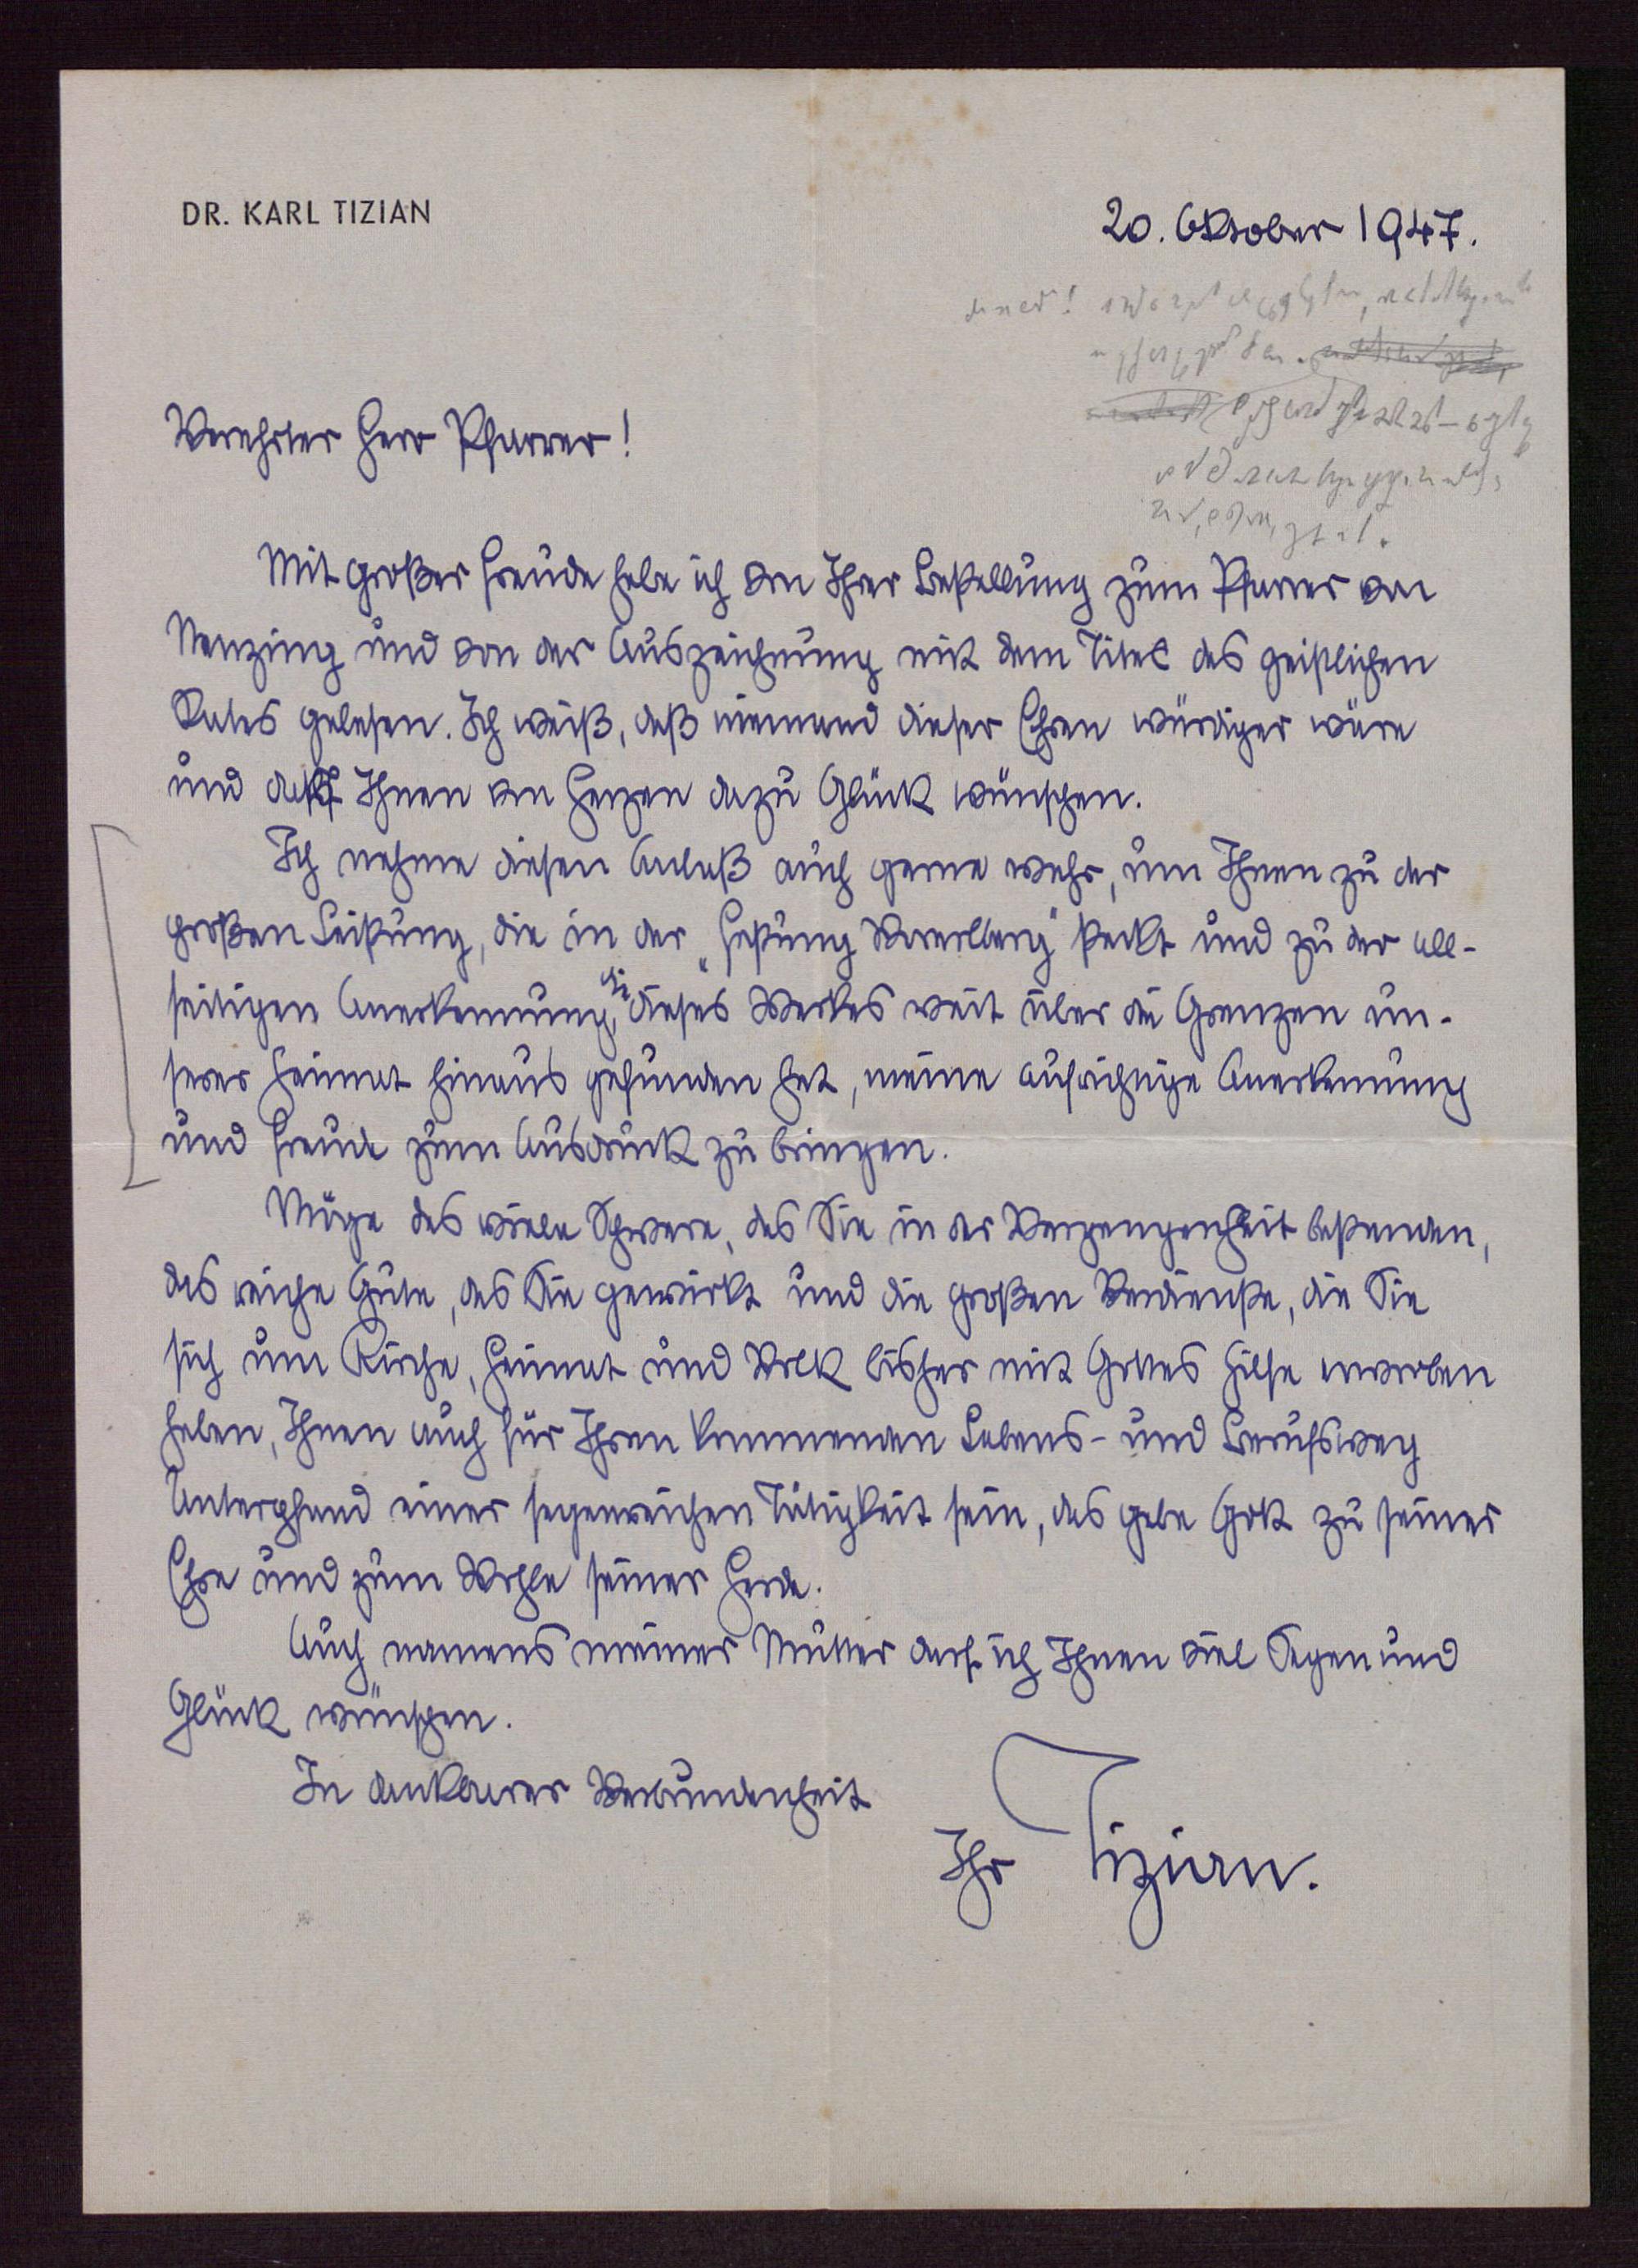 DR. KARL TIZIAN
20. Oktober 1947.
Verehrter Herr Pfarrer!
Mit großer Freude habe ich von Ihrer Bestellung zum Pfarrer von
Nenzing und von der Auszeichnung mit dem Titel des geistlichen
Rates gelesen. Ich weiß, daß niemand dieser Ehren würdiger wäre
und darf Ihnen von Herzen dazu Glück wünschen.
Ich nehme diesen Anlaß auch gerne wahr, um Ihnen zu der
großen Leistung, die in der „Festung Vorarlberg" steckt und zu der all-
seitigen Anerkennung, die dieses Werkes weit über die Grenzen un-
serer Heimat hinaus gefunden hat, meine aufrichtige Anerkennung
und Freude zum Ausdruck zu bringen.
Möge das viele Schwere, das Sie in der Vergangenheit bestanden,
das reiche Gute, das Sie gewirkt und die großen Verdienste, die Sie
sich um Kirche, Heimat und Volk bisher mit Gottes Hilfe erworben
haben, Ihnen auch für Ihren kommenden Lebens- und Berufsweg
Unterpfand einer segensreichen Tätigkeit sein, das gebe Gott zu seiner
Ehre und zum Wohle seiner Herde.
Auch namens meiner Mutter darf ich Ihnen viel Segen und
Glück wünschen.
In dankbarer Verbundenheit
Ihr Tizian.